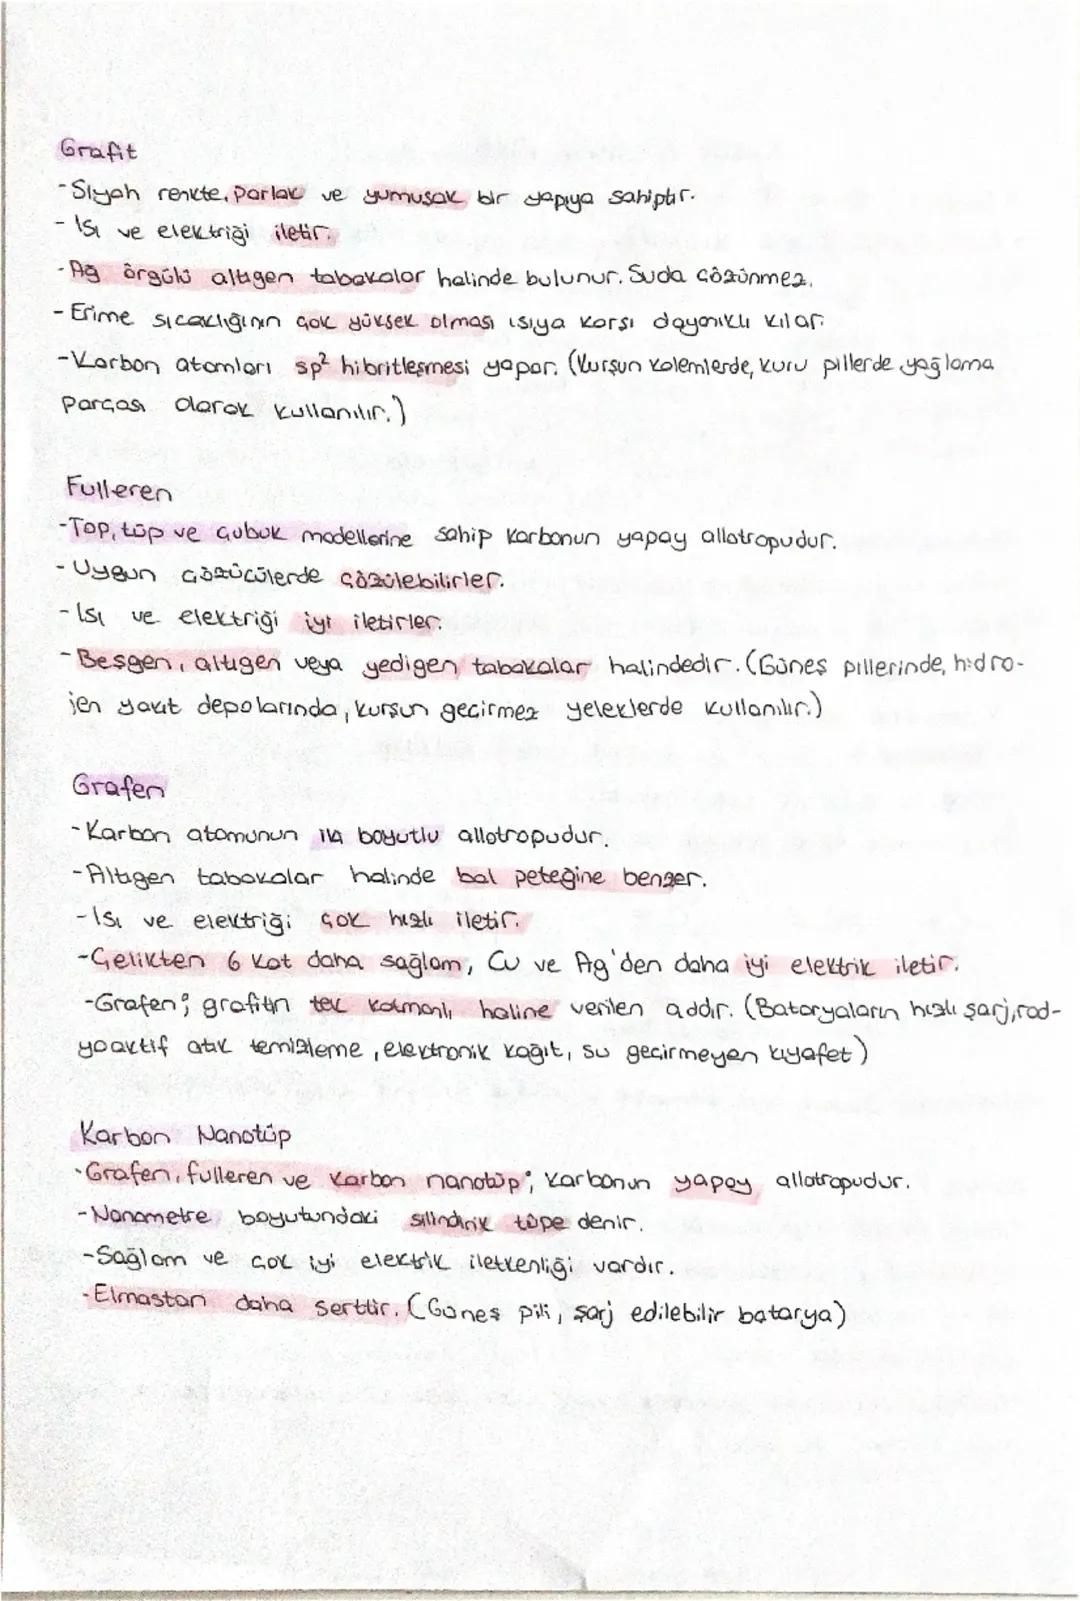 Grafit
-Siyah renkte, parlak ve yumuşak bir yapıya sahiptir.
- Isı ve elektriği iletir.
-Ağ örgülü altıgen tabakalar halinde bulunur. Suda çözünmez.
- Erime sıcaklığının çok yüksek olması ısıya karşı dayanıklı kılar.
-Karbon atomları sp² hibritleşmesi yapar. (Kurşun kalemlerde, kuru pillerde yağlama
parçası olarak kullanılır.)
Fulleren
-Top, tüp ve çubuk modellerine sahip karbonun yapay allotropudur.
- Uygun çözücülerde çözülebilirler.
- Isı ve elektriği iyi iletirler.
- Beşgen, altıgen veya yedigen tabakalar halindedir. (Güneş pillerinde, hidro-
jen yakıt depolarında, kurşun geçirmez yeleklerde kullanılır.)
Grafen
- Karbon atomunun iki boyutlu allotropudur.
-Altıgen tabakalar halinde bal peteğine benzer.
-Isı ve elektriği çok hızlı iletir.
-Çelikten 6 kat daha sağlam, Cu ve Ag'den daha iyi elektrik iletir.
-Grafen; grafitin tek katmanlı haline verilen addır. (Bataryaların hızlı şarj, rad-
yoaktif atık temizleme, elektronik kağıt, su geçirmeyen kıyafet)
Karbon Nanotüp
-Grafen, fulleren ve karbon nanotüp; karbonun yapay allotropudur.
-Nanometre boyutundaki silindirik tüpe denir.
-Sağlam ve çok iyi elektrik iletkenliği vardır.
-Elmastan daha serttir. (Güneş pili, şarj edilebilir batarya)